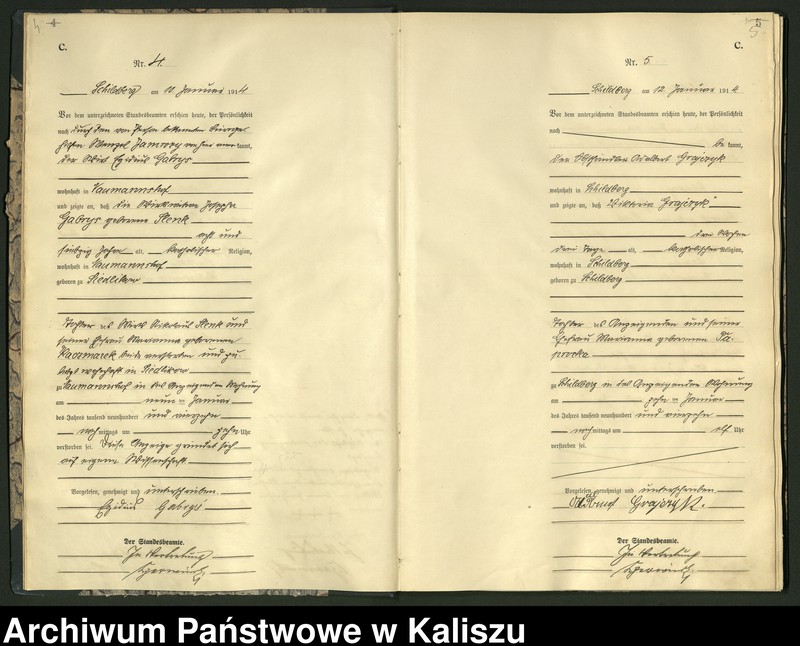 4
C.
Nr. 4.
Schildberg am 10. Januar 1914
Vor dem unterzeichneten Standesbeamten erschien heute, der Persönlichkeit
nach durch den von Person bekannten
kannt,
der Wirt Egidius Gabrys
wohnhaft in Naumannshof
und zeigte an, daß die Josepha
Gabrys geborene Slenk
acht und
siebzig Jahre alt, katholischer Religion,
wohnhaft in Naumannshof
geboren zu Siedlikow
Tochter des Wirts Nikolaus Slenk und
seiner Ehefrau Marianna geborenen
Kaczmarek beide verstorben und zu-
letzt wohnhaft in Siedlikow
zu Naumannshof in des Anzeigenden Wohnung
am neun ten Januar
des Jahres tausend neunhundert und vierzehn
nach mittags um zehn Uhr
verstorben sei. Diese Anzeige gründet sich
auf eigene Wissenschaft.
Vorgelesen, genehmigt und unterschrieben
Egidius Gabrys
Der Standesbeamte.
In Vertretung
5
C.
Nr. 5
Schildberg am 12. Januar 1914
Vor dem unterzeichneten Standesbeamten erschien heute, der Persönlichkeit
nach be kannt,
der Adalbert Grajczyk
wohnhaft in Schildberg
und zeigte an, daß Wiktoria Grajczyk
drei Wochen
drei Tage alt, katholischer Religion,
wohnhaft in Schildberg
geboren zu Schildberg
Tochter des Anzeigenden und seiner
Ehefrau Marianna geborenen
zu Schildberg in des Anzeigenden Wohnung
am zehn ten Januar
des Jahres tausend neunhundert und vierzehn
nach mittags um elf Uhr
verstorben sei.
Vorgelesen, genehmigt und unterschrieben
Grajczyk.
Der Standesbeamte.
In Vertretung
Archiwum Państwowe w Kaliszu